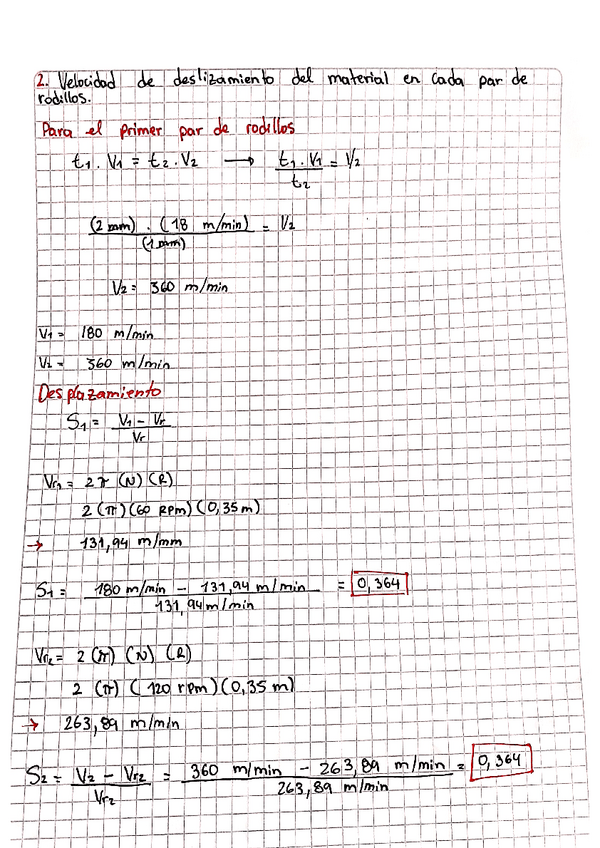 2. Velocidad de deslizamiento del material en cada par de
rodillos.
Para el primer par de rodillos
t1 . V1 = t2 . V2 → t1 . V1 / t2 = V2
(2 mm) . (18 m/min) / (1 mm) = V2
V2 = 360 m/min
V1 = 180 m/min
V2 = 360 m/min
Desplazamiento
S1 = V1 - Vr / Vr
Vr1 = 2π (N) (R)
2 (π) (60 RPm) (0,35 m)
→ 131,94 m/mm
S1 = 180 m/min - 131,94 m/min / 131,94 m/min = 0,364
Vr2 = 2 (π) (N) (R)
2 (π) (120 rpm) (0,35 m)
→ 263,89 m/min
S2 = V2 - Vr2 / Vr2 = 360 m/min - 263,89 m/min / 263,89 m/min = 0,364